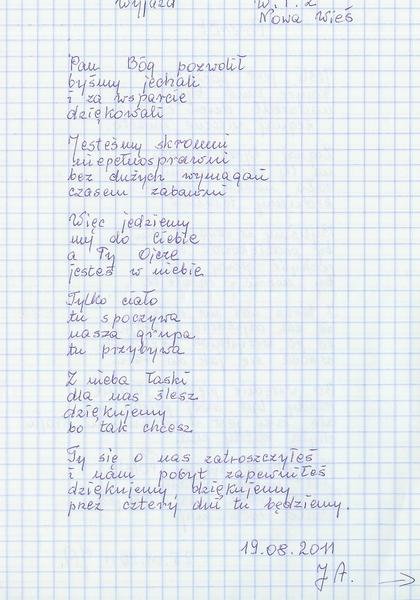 Wyjazd W.T.Z
Nowa Wieś
Pan Bóg pozwolił
byśmy jechali
i za wsparcie
dziękowali
Jesteśmy skromni
niepełnosprawni
bez dużych wymagań
czasem zabawni
Więc jedziemy
my do Ciebie
a Ty Ojcze
jesteś w niebie
Tylko ciało
tu spoczywa
nasza grupa
tu przybywa
Z nieba łaski
dla nas ślesz
dziękujemy
bo tak chcesz
Ty się o nas zatroszczyłeś
i nam pobyt zapewniłeś
dziękujemy, dziękujemy
przez cztery dni tu będziemy.
19.08.2011
J A.